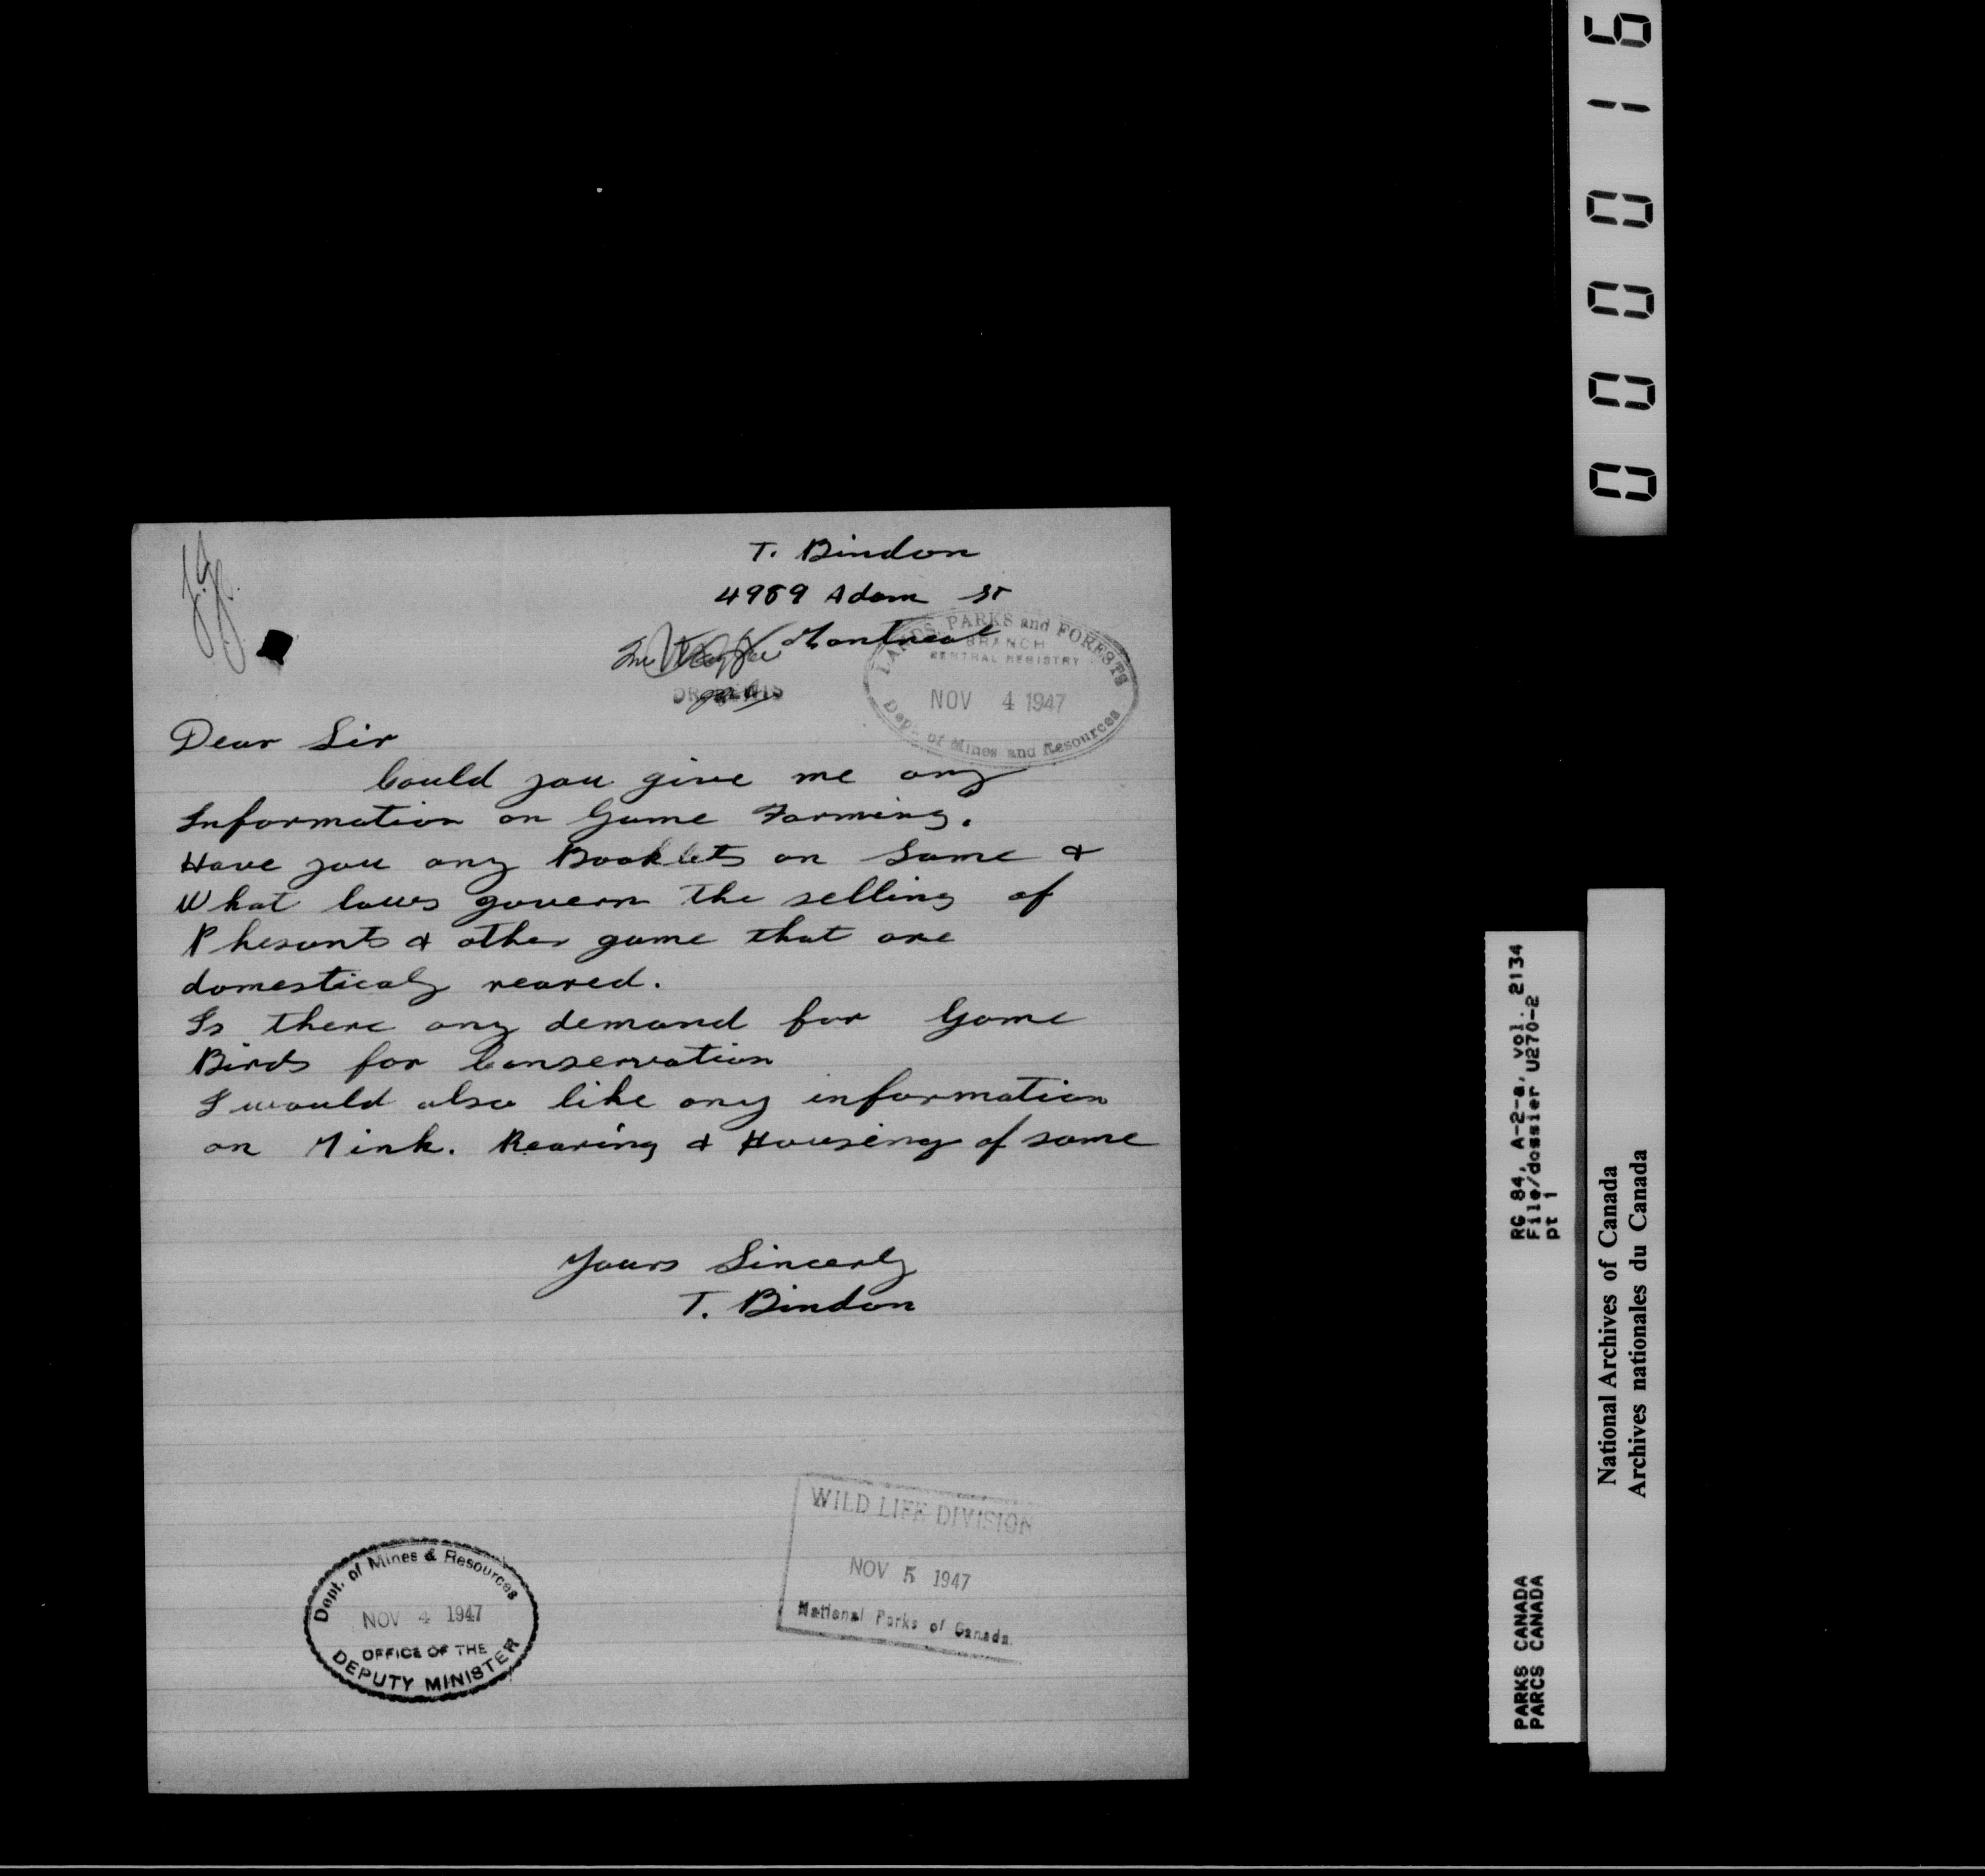 T. Bindon
4989 Adam St
Montreal
DR. LEWIS
LANDS, PARKS and FORESTS
BRANCH
CENTRAL REGISTRY
NOV 4 1947
Dept. of Mines and Resources
Dear Sir
Could you give me any
Information on Game Farming.
Have you any Booklets on Same &
What laws govern the selling of
Phesants & other game that are
domesticaly reared.
Is there any demand for Game
Birds for Conservation
I would also like any information
on Mink. Rearing & Housing of same
Yours Sincerly
T. Bindon
WILD LIFE DIVISION
NOV 5 1947
National Parks of Canada
Dept. of Mines & Resources
NOV 4 1947
OFFICE OF THE
DEPUTY MINISTER
000016
RG 84, A-2-a, vol. 2134
File/dossier U270-2
pt 1
PARKS CANADA
PARCS CANADA
National Archives of Canada
Archives nationales du Canada